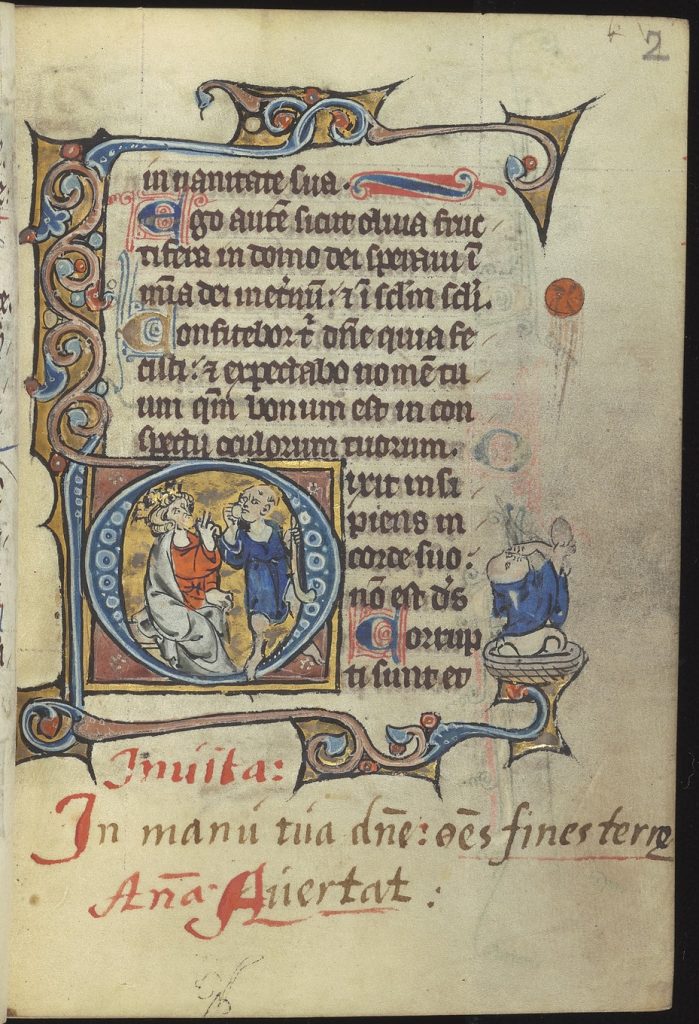 2
in uanitate sua.
Ego autē sicut oliua fruc
tifera in domo dei speraui ī
mīa dei inet̄nū: ⁊ ī sc̄lm sc̄li.
Confitebor t̄ dn̄e quia fe
cisti: ⁊ expectabo nomē tu
um qm̄ bonum est in con
spectu oculorum tuorum.
Dixit insi
piens in
corde suo:
nō est d̄s
Corrup
ti sunt et
Inuita:
In manu tua dn̄e: oēs fines terræ
An̄a. Auertat: